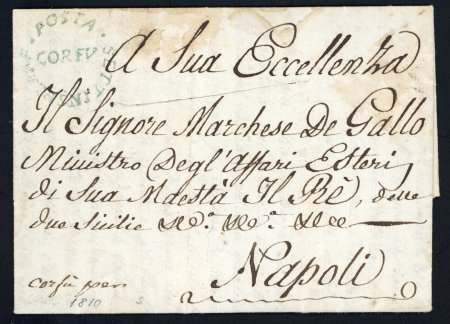 POSTA
CORFU
A Sua Eccellenza
Il Signore Marchese De Gallo
Ministro Degl'Affari Esteri
di Sua Maestà Il Rè, delle
due Sicilie
Napoli
corfù per
1810
s